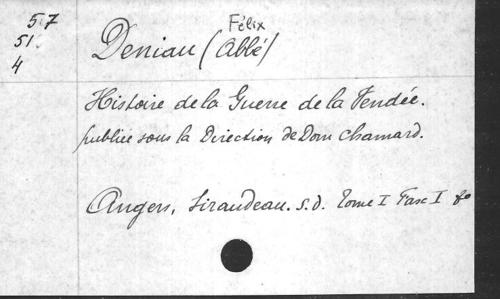 57
51.
4
Deniau (Félix Abbé)
Histoire de la Guerre de la Vendée.
publiée sous la Direction de Dom Chamard.
Angers, Siraudeau. s.d. Tome I Fasc I